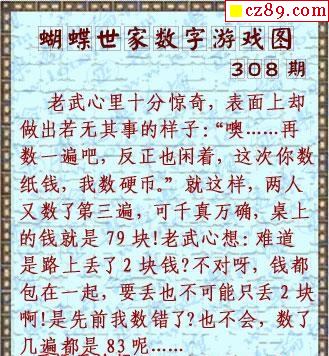 cz89.com
蝴蝶世家数字游戏图
308 期
老武心里十分惊奇，表面上却
做出若无其事的样子：“噢……再
数一遍吧，反正也闲着，这次你数
纸钱，我数硬币。”就这样，两人
又数了第三遍，可千真万确，桌上
的钱就是 79 块!老武心想: 难道
是路上丢了 2 块钱?不对呀，钱都
包在一起，要丢也不可能只丢 2 块
啊!是先前我数错了?也不会，数了
几遍都是 83 呢……